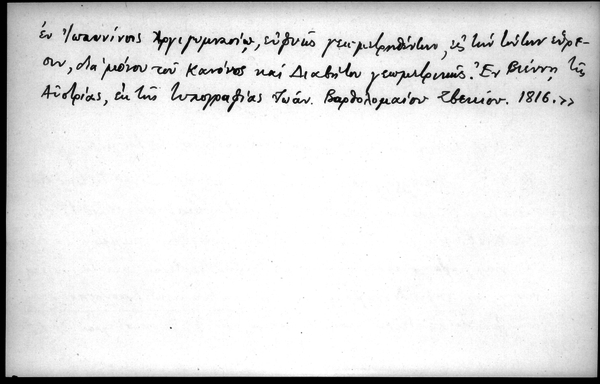 ἐν Ἰωαννίνοις Ἀρχιγυμνασίῳ, εὐφυῶς γεωμετρηθέντων, εἰς τὴν τούτων εὕρε-
σιν, διὰ μόνου τοῦ Κανόνος καὶ Διαβήτου γεωμετρικῶς. Ἐν Βιέννῃ τῆς
Αὐστρίας, ἐκ τῆς Τυπογραφίας Ἰωάν. Βαρθολομαίου Σβεκίου. 1816.>>